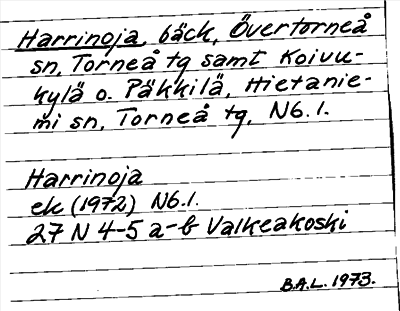 Harrinoja, bäck, Övertorneå
sn, Torneå tg samt Koivu-
kylä o. Päkkilä, Hietanie-
mi sn, Torneå tg, N6.1.
Harrinoja
ek (1972) N6.1.
27 N 4-5 a-b Valkeakoski
B.A.L. 1973.